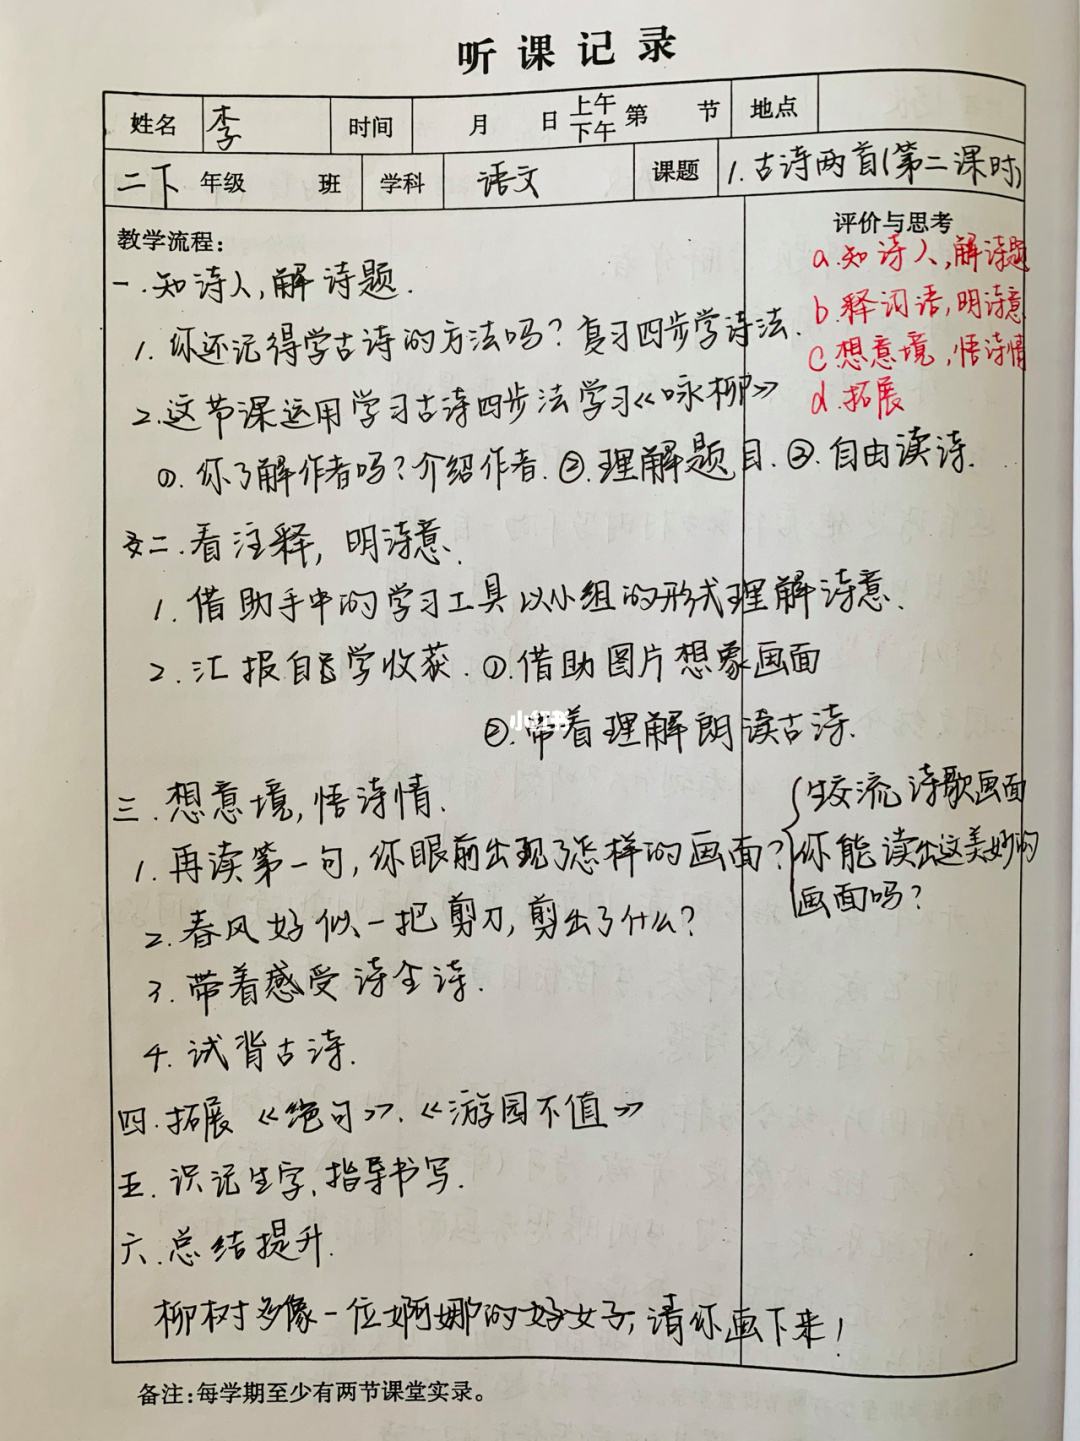 听课记录
姓名 李 时间 月 日 上午 下午 第 节 地点
二下 年级 班 学科 语文 课题 1.古诗两首(第二课时)
教学流程: 评价与思考
a.知诗人,解诗题
一.知诗人,解诗题.
b.释词语,明诗意
1.你还记得学古诗的方法吗?复习四步学诗法.
c.想意境,悟诗情
2.这节课运用学习古诗四步法学习《咏柳》
d.拓展
①.你了解作者吗?介绍作者.②.理解题目.③.自由读诗.
二.看注释,明诗意.
1.借助手中的学习工具以小组的形式理解诗意.
2.汇报自己学收获.①.借助图片想象画面
②.带着理解朗读古诗.
小红书
三.想意境,悟诗情.
1.再读第一句,你眼前出现了怎样的画面?
生交流诗歌画面
你能读出这美妙的
画面吗?
2.春风好似一把剪刀,剪出了什么?
3.带着感受诗全诗.
4.试背古诗.
四.拓展《绝句》.《游园不值》
五.识记生字,指导书写.
六.总结提升.
柳树多像一位婀娜的好女子,请你画下来!
备注:每学期至少有两节课堂实录。